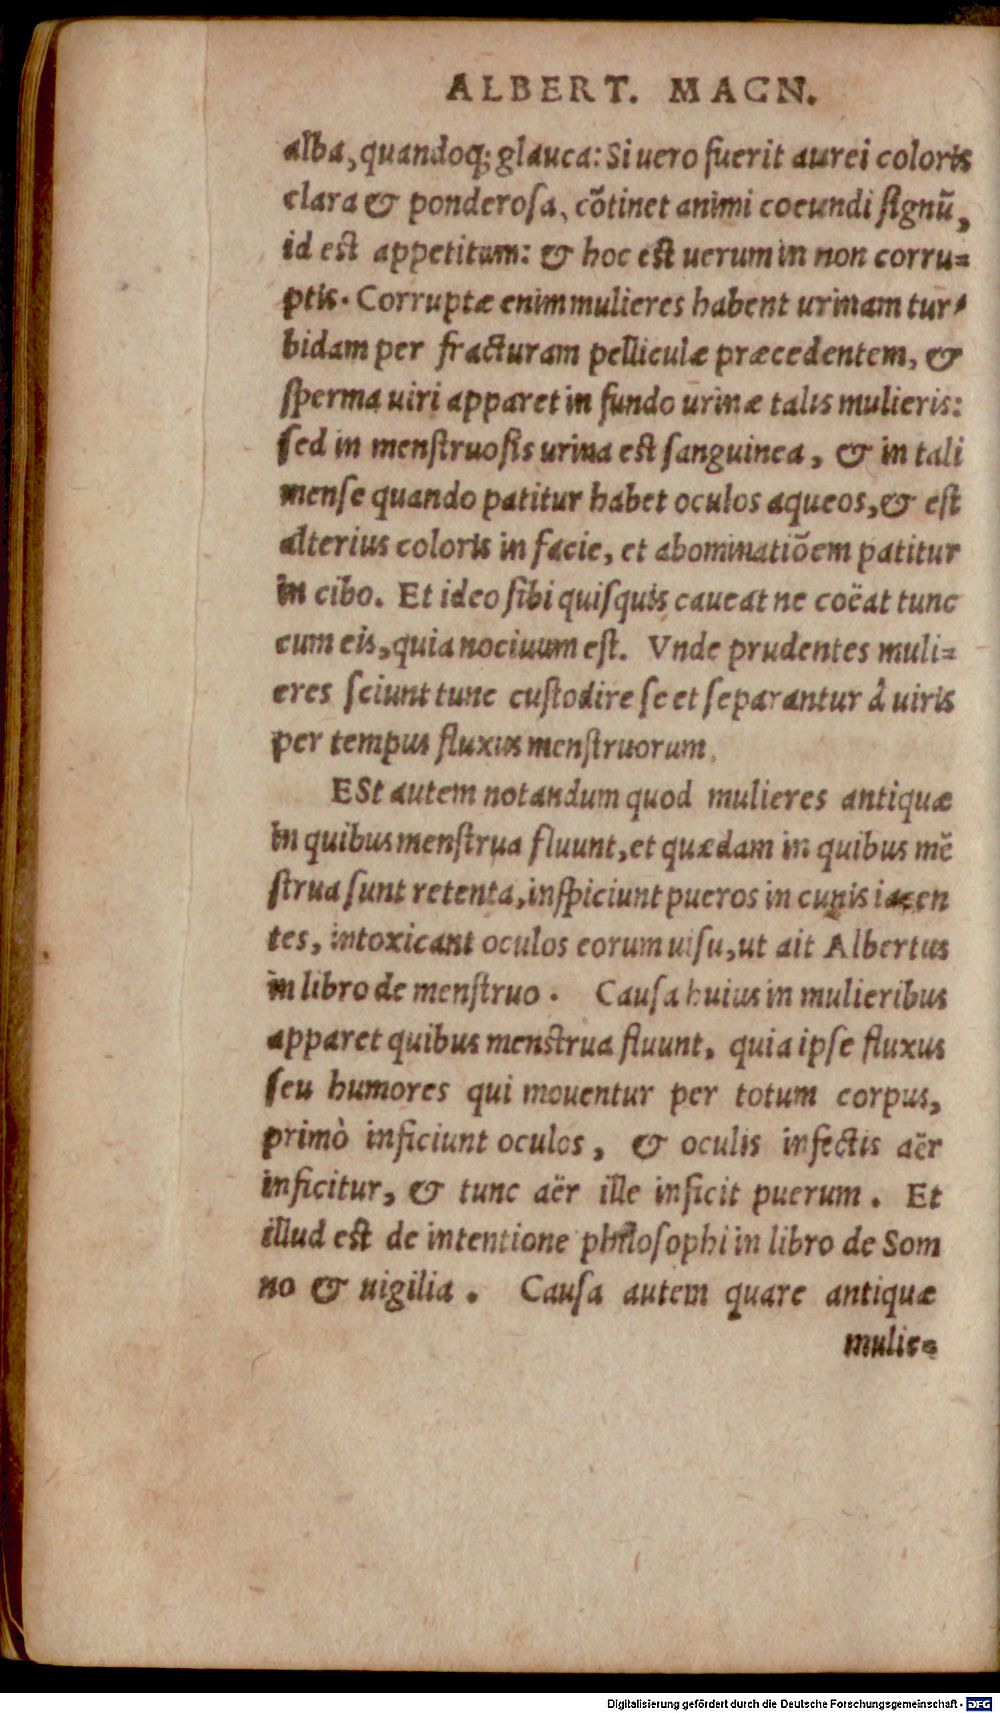 ALBERT. MAGN.
alba, quandoq; glauca: Si uero fuerit aurei coloris
clara & ponderosa, cõtinet animi coeundi signũ,
id est appetitum: & hoc est uerum in non corru=
ptis. Corruptæ enim mulieres habent urinam tur=
bidam per fracturam pelliculæ præcedentem, &
sperma uiri apparet in fundo urinæ talis mulieris:
sed in menstruosis urina est sanguinea, & in tali
mense quando patitur habet oculos aqueos, & est
alterius coloris in facie, et abominatiõem patitur
in cibo. Et ideo sibi quisquis caueat ne coëat tunc
cum eis, quia nociuum est. Vnde prudentes muli=
eres sciunt tunc custodire se et separantur à uiris
per tempus fluxus menstruorum.
ESt autem notandum quod mulieres antiquæ
in quibus menstrua fluunt, et quædam in quibus mẽ
strua sunt retenta, inspiciunt pueros in cunis iacen
tes, intoxicant oculos eorum uisu, ut ait Albertus
in libro de menstruo. Causa huius in mulieribus
apparet quibus menstrua fluunt, quia ipse fluxus
seu humores qui mouentur per totum corpus,
primò inficiunt oculos, & oculis infectis aër
inficitur, & tunc aër ille inficit puerum. Et
illud est de intentione philosophi in libro de Som
no & uigilia. Causa autem quare antiquæ
mulie=
Digitalisierung gefördert durch die Deutsche Forschungsgemeinschaft - DFG